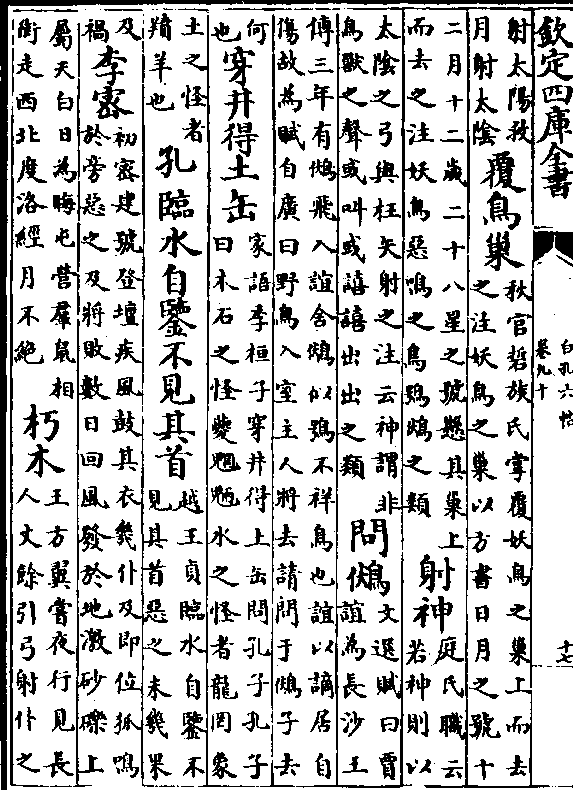 欽定四庫全書
白孔六帖
卷九十
十七
射太陽救
月射太陰
覆鳥巢
秋官硩族氏掌覆妖鳥之巢上而去
之注妖鳥之巢以方書日月之號十
二月十二歲二十八星之號懸其巢上
而去之注妖鳥惡鳴之鳥鴞鵩之類
射神
庭氏職云
若神則以
太陰之弓與枉矢射之注云神謂非
鳥獸之聲或叫或譆譆出出之類
問鵩
文選賦曰賈
誼為長沙王
傅三年有鵩飛入誼舍鵩似鴞不祥鳥也誼以謫居自
傷故為賦自廣曰野鳥入室主人將去請問于鵩子去
何
也
穿井得土缶
家語季桓子穿井得土缶問孔子孔子
曰木石之怪夔魍魎水之怪者龍罔象
土之怪者
羵羊也
孔臨水自鑒不見其首
越王貞臨水自鑒不
見其首惡之未幾果
及
禍
李密
初密建號登壇疾風鼓其衣幾仆及即位狐鳴
於旁惡之及將敗數日回風發於地激砂礫上
屬天白日為晦屯營羣鼠相
銜走西北度洛經月不絕
朽木
王方翼嘗夜行見長
人丈餘引弓射仆之